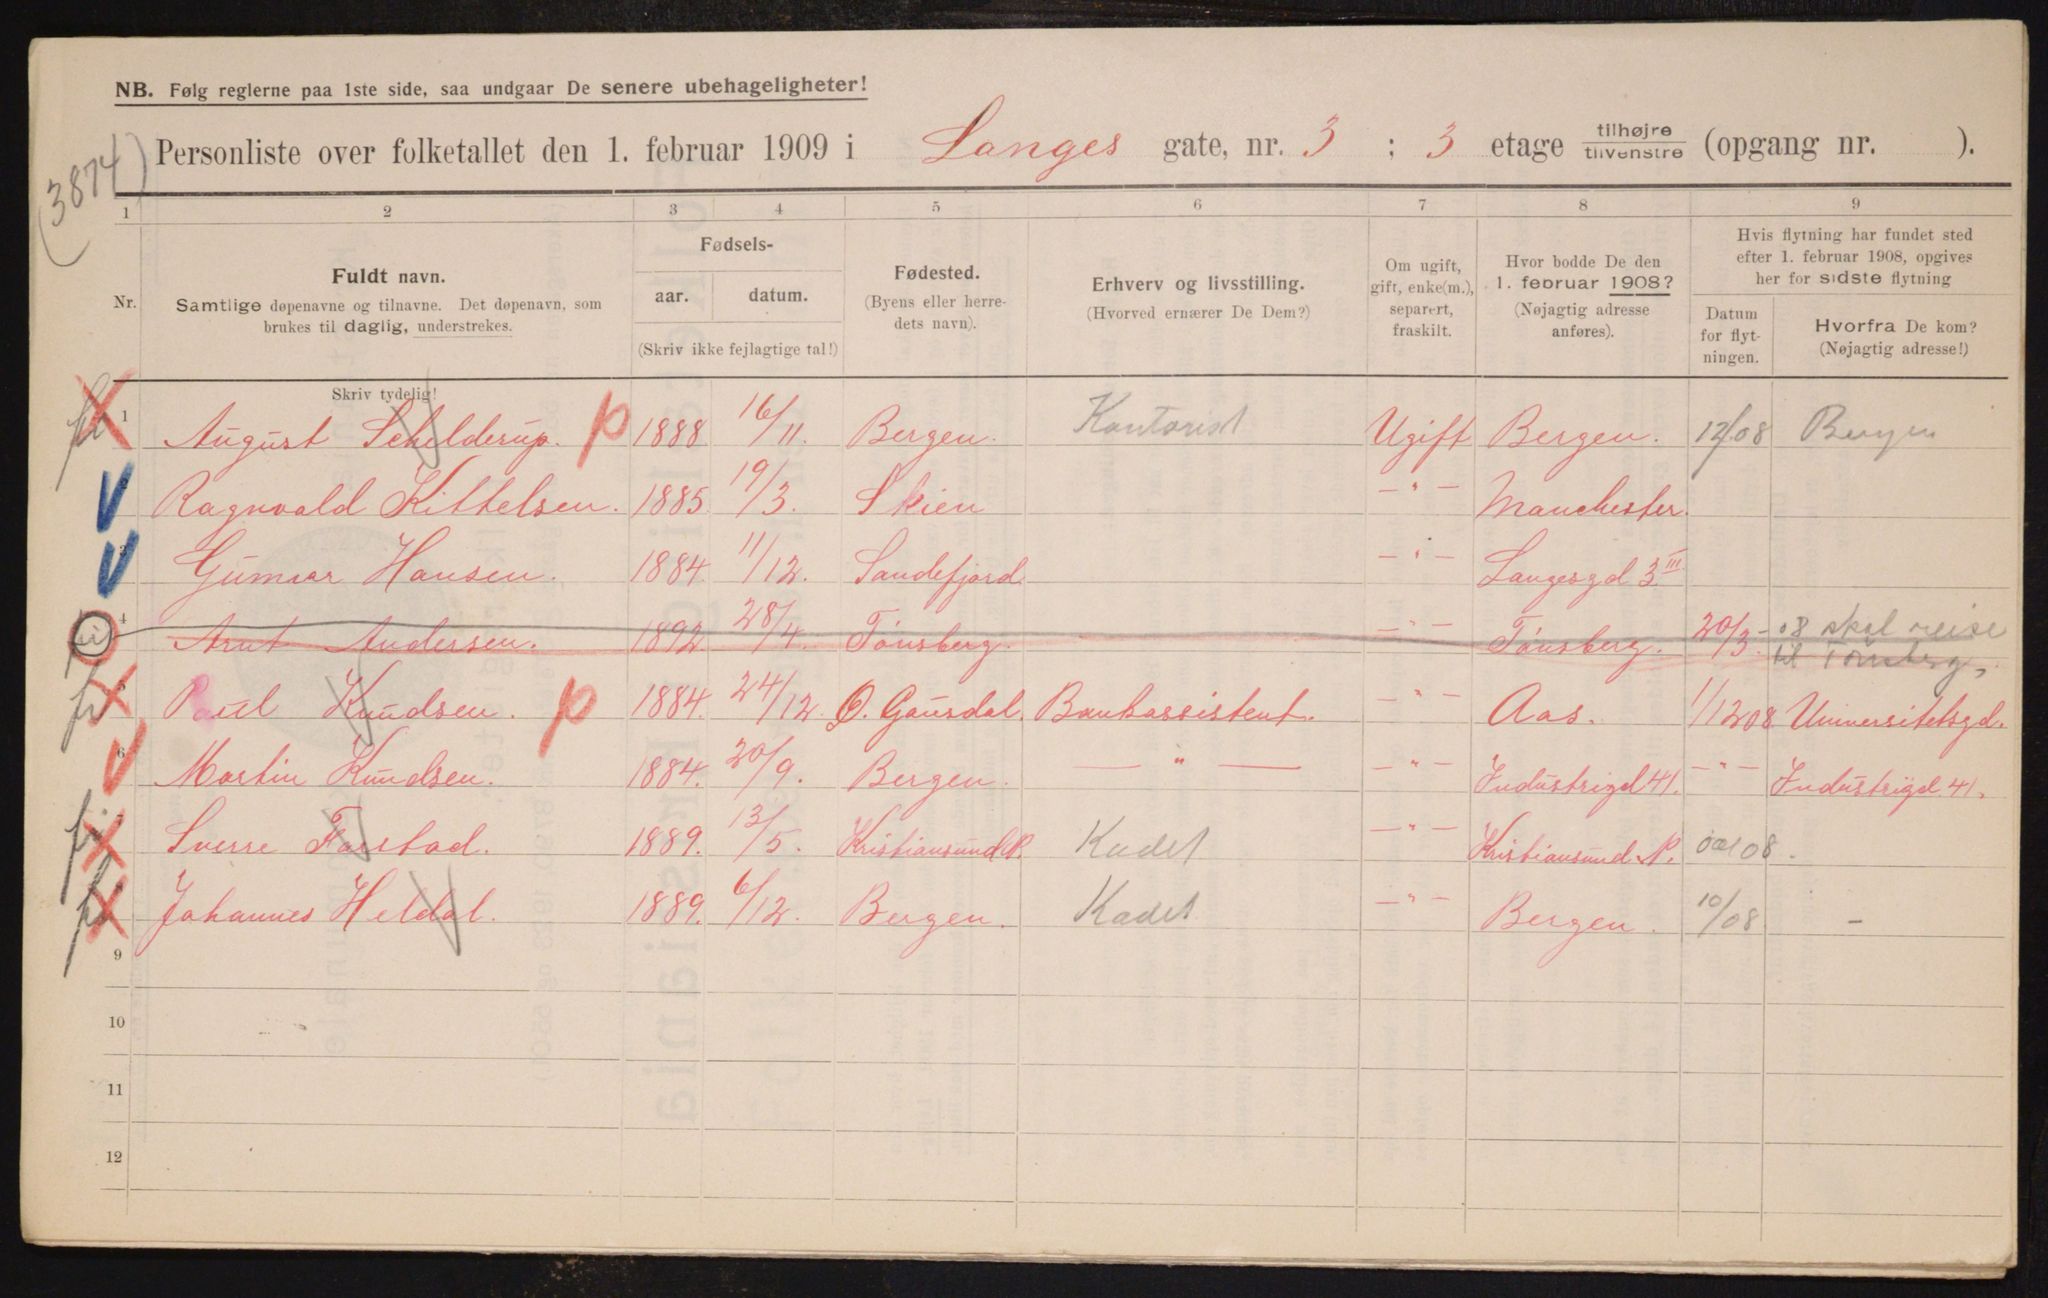 NB. Følg reglerne paa 1ste side, saa undgaar De senere ubehageligheter!
(3874)
Personliste over folketallet den 1. februar 1909 i Langes gate, nr. 3 ; 3 etage tilhøjre tilvenstre (opgang nr. ).
1 2 3 4 5 6 7 8 9
Nr.
Fuldt navn.
Samtlige døpenavne og tilnavne. Det døpenavn, som
brukes til daglig, understrekes.
Skriv tydelig!
Fødsels-
aar. datum.
(Skriv ikke fejlagtige tal!)
Fødested.
(Byens eller herre-
dets navn).
Erhverv og livsstilling.
(Hvorved ernærer De Dem?)
Om ugift,
gift, enke(m.),
separert,
fraskilt.
Hvor bodde De den
1. februar 1908?
(Nøjagtig adresse
anføres).
Hvis flytning har fundet sted
efter 1. februar 1908, opgives
her for sidste flytning
Datum
for flyt-
ningen.
Hvorfra De kom?
(Nøjagtig adresse!)
1 August Schelderup. p 1888 16/11 Bergen. Kontorist Ugift Bergen. 12/08 Bergen
Ragnvald Kittelsen. 1885 19/3. Skien — " — Manchester.
3 Gunnar Hansen. 1884. 11/12. Sandefjord. — " — Langesgd 3 III
4 Arnt Andersen. 1892 28/4. Tønsberg. — " — Tønsberg. 20/3 - 08 skal reise
til Tønsberg,
5 Paul Knudsen. p 1884. 24/12. Ø. Gausdal. Bankassistent. — " — Aas. 1/12 08 Universitetsgd.
6 Martin Knudsen. 1884. 20/9. Bergen. — " — — " — Industrigd 41. — " — Industrigd. 41.
7 Sverre Farstad. 1889. 13/5. Kristiansund N. Kadet — " — Kristiansund N. 08.
8 Johannes Heldal. 1889. 6/12. Bergen. Kadet — " — Bergen. 10/08 —
9
10
11
12